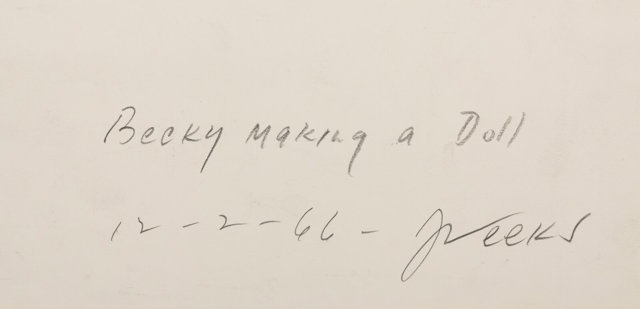 Becky Making a Doll
12-2-66 - JWeeks